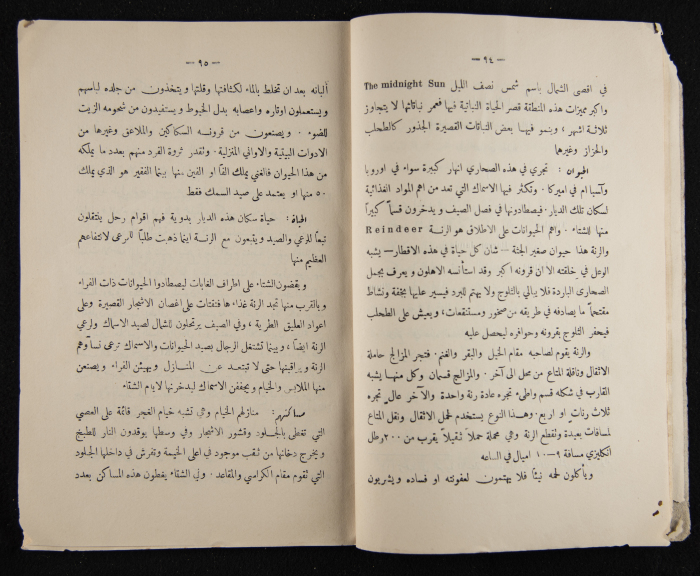 — ٩٤ —
في اقصى الشمال باسم شمس نصف الليل The midnight Sun
واكبر مميزات هذه المنطقة قصر الحياة النباتية فيها فعمر نباتاتها لا يتجاوز
ثلاثة اشهر، وينمو فيها بعض النباتات القصيرة الجذور كالطحلب
والحزاز وغيرها
الحيوان : تجري في هذه الصحاري انهار كبيرة سواء في اوروبا
وآسيا ام في اميركا . وتكثر فيها الاسماك التي تعد من اهم المواد الغذائية
لسكان تلك الديار . فيصطادونها في فصل الصيف ويدخرون قسماً كبيراً
منها للشتاء . واهم الحيوانات على الاطلاق هو الرنة Reindeer
والرنة هذا حيوان صغير الجثة — شأن كل حياة في هذه الاقطار — يشبه
الوعل في خلقته الا ان قرونه اكبر وقد استأنسه الاهلون ويعرف بجمل
الصحارى الباردة فلا يبالي بالثلوج ولا يهتم للبرد فيسير عليها بخفة ونشاط
مقتحماً ما يصادفه في طريقه من صخور ومستنقعات، ويعيش على الطحلب
فيحفر الثلوج بقرونه وحوافره ليحصل عليه
والرنة يقوم لصاحبه مقام الخيل والبقر والغنم . فتجر المزالج حاملة
الاثقال وناقلة المتاع من محل الى آخر . والمزالج قسمان وكل منهما يشبه
القارب في شكله قسم واطىء تجره عادة رنة واحدة والآخر عالٍ تجره
ثلاث رنات او اربع . وهذا النوع يستخدم لحمل الاثقال ونقل المتاع
لمسافات بعيدة وتقطع الرنة وهي محملة حملاً ثقيلاً يقرب من ٢٠٠ رطل
انكليزي مسافة ٩-١٠ اميال في الساعة
ويأكلون لحمه نيئاً فلا يهتمون لعفونته او فساده ويشربون
— ٩٥ —
ألبانه بعد ان تخلط بالماء لكثافتها وقلتها ويتخذون من جلده لباسهم
ويستعملون اوتاره واعصابه بدل الخيوط ويستفيدون من شحومه الزيت
للضوء . ويصنعون من قرونه السكاكين والملاعق وغيرها من
الادوات البيتية والاواني المنزلية . وتقدر ثروة الفرد منهم بعدد ما يملكه
من هذا الحيوان فالغني يملك الفاً او الفين منها بينما الفقير هو الذي يملك
٥٠ منها او يعتمد على صيد السمك فقط
الحياة : حياة سكان هذه الديار بدوية فهم اقوام رحل ينتقلون
تبعاً للرعي والصيد ويتبعون مع الرنة اينما ذهبت طلباً للمرعى لانتفاعهم
العظيم منها
ويقضون الشتاء على اطراف الغابات ليصطادوا الحيوانات ذات الفراء
وبالقرب منها تجد الرنة غذاءها فتقتات على اغصان الاشجار القصيرة وعلى
اعواد العليق الطرية ، وفي الصيف يرتحلون للشمال لصيد الاسماك ولرعي
الرنة ايضاً ، وبينما تشتغل الرجال بصيد الحيوانات والاسماك ترعى نساؤهم
الرنة ويراقبنها حتى لا تبتعد عن المنازل ويهيئن الفراء ويصنعن
منها الملابس والخيام ويجففن الاسماك ليدخرنها لايام الشتاء
مساكنهم : منازلهم الخيام وهي تشبه خيام الغجر قائمة على العصي
التي تغطى بالجلود وقشور الاشجار وفي وسطها يوقدون النار للطبخ
ويخرج دخانها من ثقب موجود في اعلى الخيمة وتفرش في داخلها الجلود
التي تقوم مقام الكراسي والمقاعد . وفي الشتاء يغطون هذه المساكن بعدد